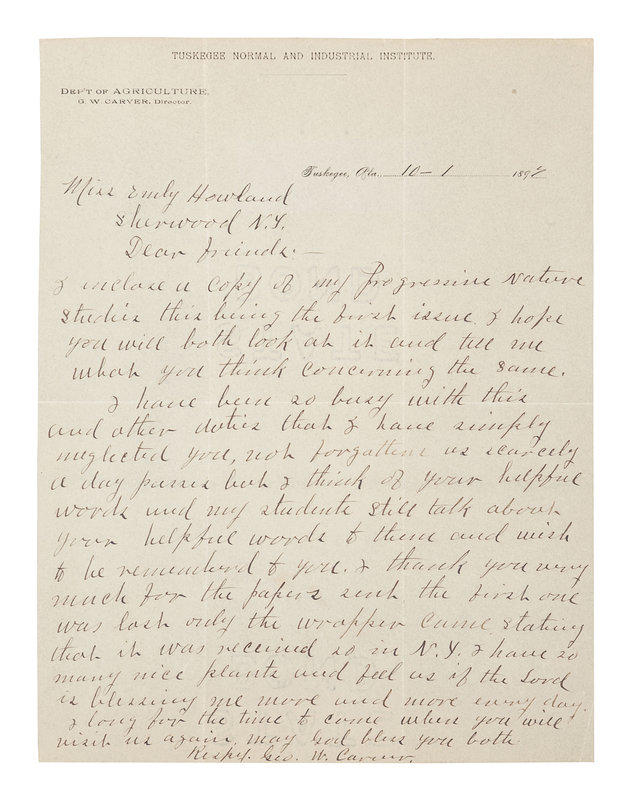 TUSKEGEE NORMAL AND INDUSTRIAL INSTITUTE.
DEP'T OF AGRICULTURE,
G. W. CARVER, Director.
Tuskegee, Ala., 10-1 189
Miss Emily Howland
Sherwood N.Y.
Dear friends:—
I inclose a copy of my Progressive Nature
Studies this being the first issue. I hope
you will both look at it and tell me
what you think concerning the same.
I have been so busy with this
and other duties that I have simply
neglected you, not forgotten as scarcely
a day passes but I think of your helpful
words and my students still talk about
your helpful words to them and wish
to be remembered to you. I thank you very
much for the papers sent the first one
was lost only the wrapper came stating
that it was received so in N.Y. I have so
many nice plants and feel as if the Lord
is blessing me more and more every day.
I long for the time to come when you will
visit us again, may God bless you both
Respy. Geo. W. Carver.